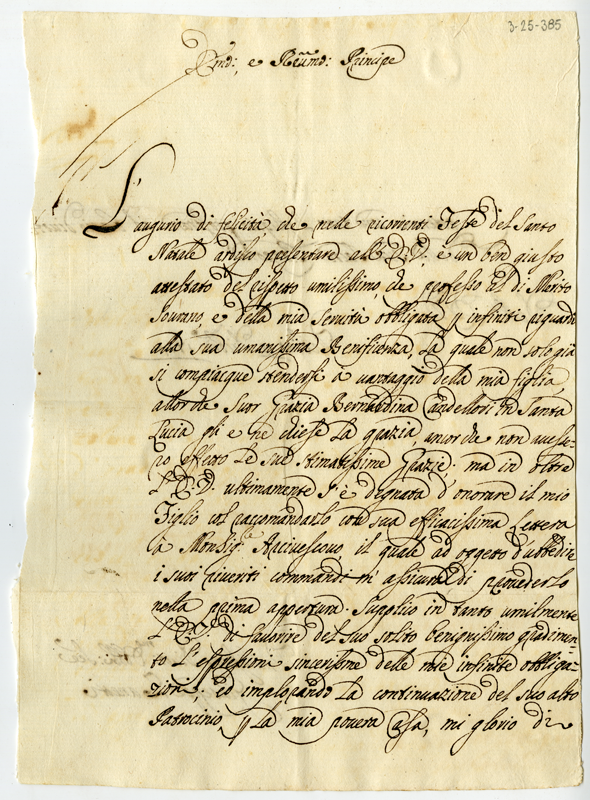 3-25-385
e Rẽũmd: Principe
L'augurio di felicità che nelle ricorrenti Feste del Santo
Natale ardisco presentare all' è un ben giusto
attestato del rispetto umilissimo, che professo al di Merito
Sovrano, e della mia servitù obbligata infiniti riguardi
alla sua umanissima Benificenza, la quale non solo già
si compiacque stendersi à vantaggio della mia figlia,
allor che Suor Grazia Bernardina Candellori in Santa
Lucia e ne diese la grazia, ancor che non aves-
ro effetto le sue stimatissime Grazie: ma in oltre
ultimamente s'è degnata d'onorare il mio
Figlio col raccomandarlo con sua efficacissima Lettera
à Monsig.r Arcivescovo, il quale ad oggetto d'ubbedire
i suoi riveriti commandi m'assicura di provederlo
nella prima appertura. Supplico in tanto umilmente
di favorire del suo solito benignissimo gradimen-
to l'espressioni sincerissime delle mie infinite obbliga-
zioni; ed implorando la continuazione del suo alto
Patrocinio la mia povera Casa, mi glorio di